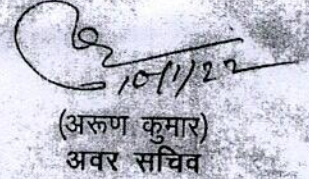 10/1/22
(अरूण कुमार)
अवर सचिव